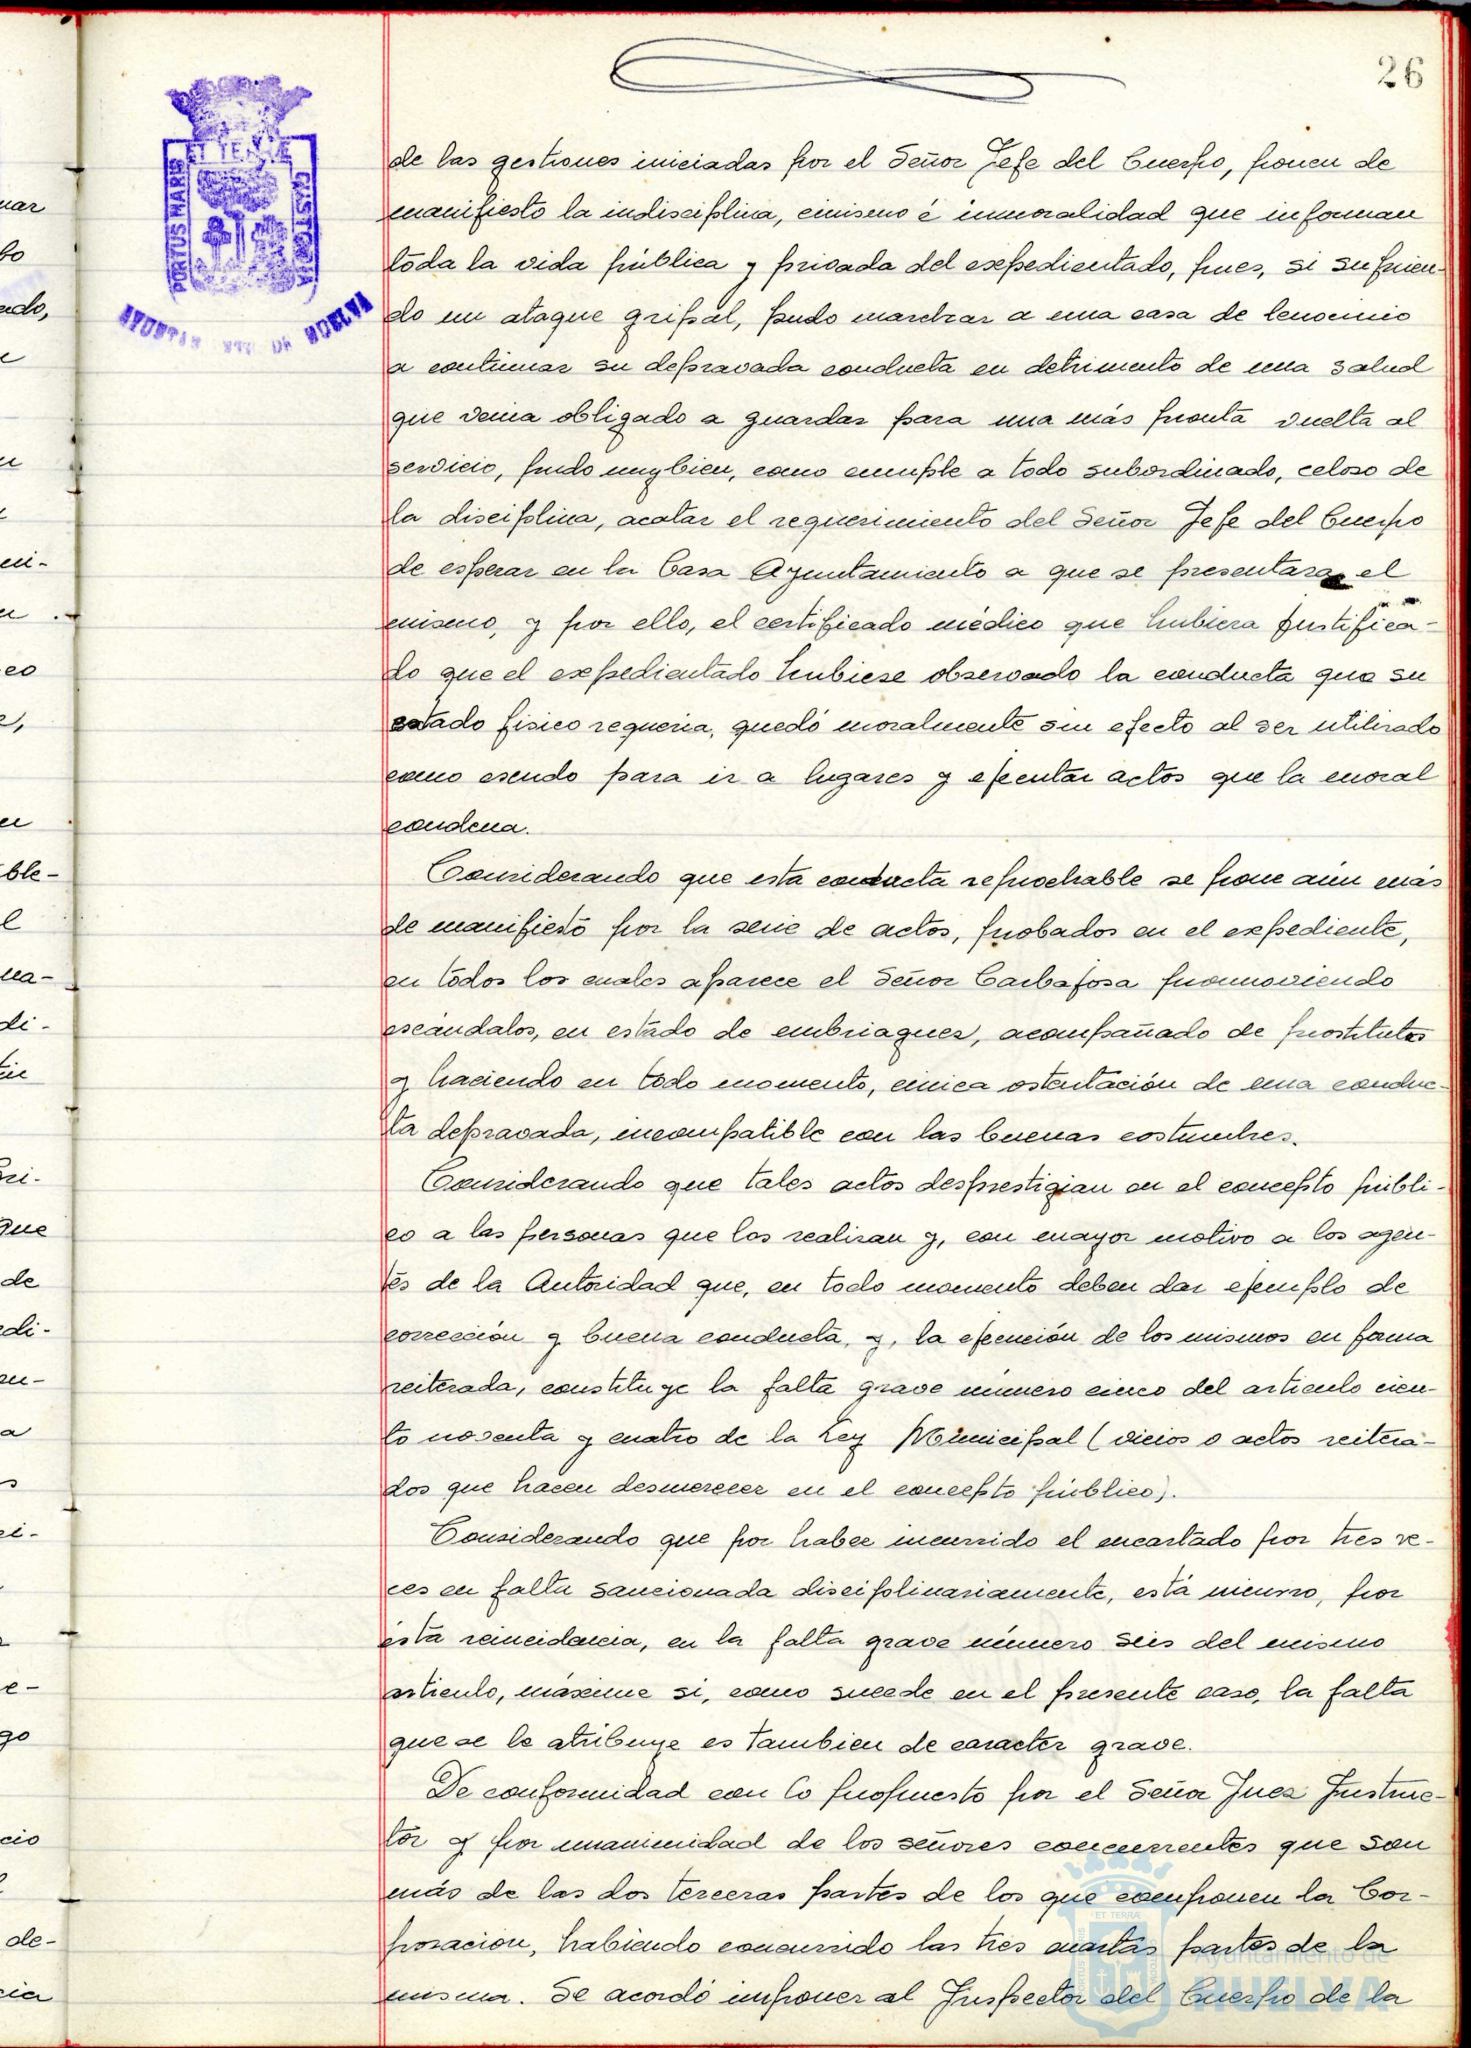 26
ET TERRÆ
PORTUS MARIS
CUSTODIA
AYUNTAMIENTO DE HUELVA
de las gestiones iniciadas por el Señor Jefe del Cuerpo, ponen de
manifiesto la indisciplina, cinismo é inmoralidad que informan
toda la vida pública y privada del expedientado, pues, si sufrien-
do un ataque gripal, pudo marchar a una casa de lenocinio
a continuar su depravada conducta en detrimento de una salud
que venia obligado a guardar para una más pronta vuelta al
servicio, pudo muy bien, como cumple a todo subordinado, celoso de
la disciplina, acatar el requerimiento del Señor Jefe del Cuerpo
de esperar en la Casa Ayuntamiento a que se presentara el
mismo, y por ello, el certificado médico que hubiera justifica-
do que el expedientado hubiese observado la conducta que su
estado fisico requeria, quedó moralmente sin efecto al ser utilizado
como escudo para ir a lugares y ejecutar actos que la moral
condena.
Considerando que esta conducta reprochable se pone aún más
de manifiesto por la serie de actos, probados en el expediente,
en todos los cuales aparece el Señor Carbajosa promoviendo
escándalos, en estado de embriaguez, acompañado de prostitutas
y haciendo en todo momento, cinica ostentación de una conduc-
ta depravada, incompatible con las buenas costumbres.
Considerando que tales actos desprestigian en el concepto públi-
co a las personas que los realizan y, con mayor motivo a los agen-
tes de la Autoridad que, en todo momento deben dar ejemplo de
corrección y buena conducta, y, la ejecución de los mismos en forma
reiterada, constituye la falta grave número cinco del articulo cien-
to noventa y cuatro de la Ley Municipal (vicios o actos reitera-
dos que hacen desmerecer en el concepto público).
Considerando que por haber incurrido el encartado por tres ve-
ces en falta sancionada disciplinariamente, está incurso, por
ésta reincidencia, en la falta grave número seis del mismo
articulo, máxime si, como sucede en el presente caso, la falta
que se le atribuye es tambien de caracter grave.
De conformidad con lo propuesto por el Señor Juez Instruc-
tor y por unanimidad de los señores concurrentes que son
más de las dos terceras partes de los que componen la Cor-
poracion, habiendo concurrido las tres cuartas partes de la
misma. Se acordó imponer al Inspector del Cuerpo de la
ET TERRA
Ayuntamiento de
HUELVA